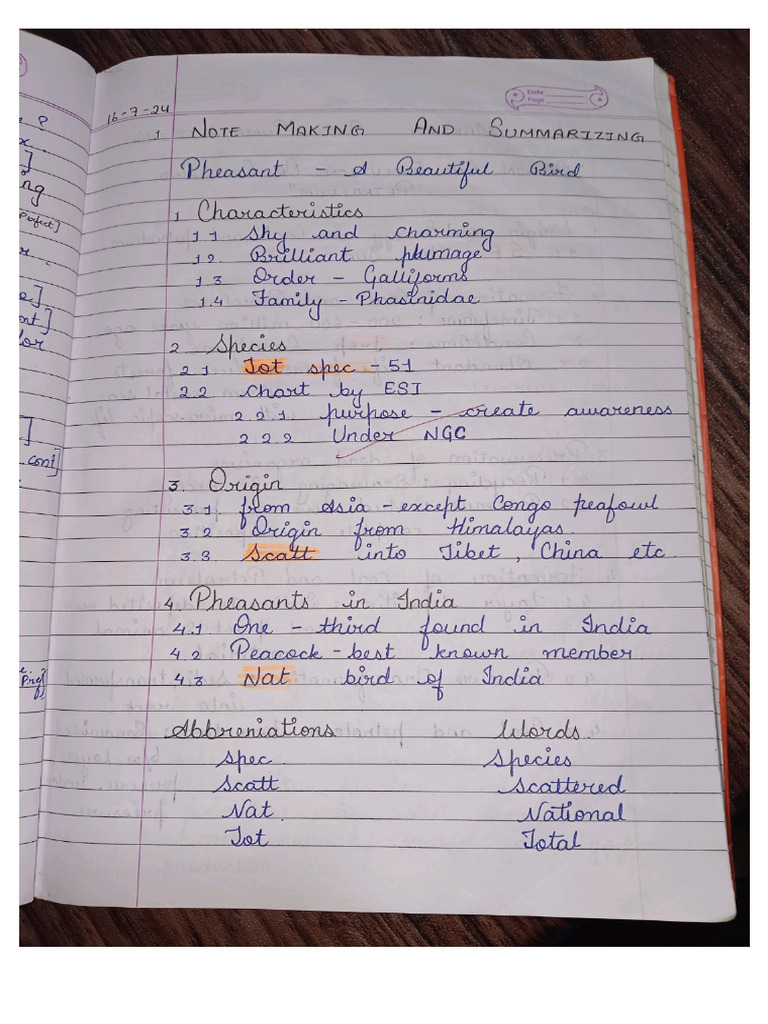 Date
Page
16-7-24
1 NOTE MAKING AND SUMMARIZING
Pheasant - A Beautiful Bird
1 Characteristics
1.1 Shy and charming
1.2. Brilliant plumage
1.3 Order - Galliforms
1.4 Family - Phasinidae
2 Species
2.1 Tot spec - 51
2.2 Chart by ESI
2.2.1 purpose - create awareness
2.2.2 Under NGC
3. Origin
3.1 from Asia - except Congo peafowl
3.2 Origin from Himalayas.
3.3 Scatt into Tibet, China etc.
4. Pheasants in India
4.1 One - third found in India
4.2 Peacock - best known member
4.3 Nat bird of India
Abbreniations Words.
Spec Species
Scatt Scattered
Nat. National
Tot Total